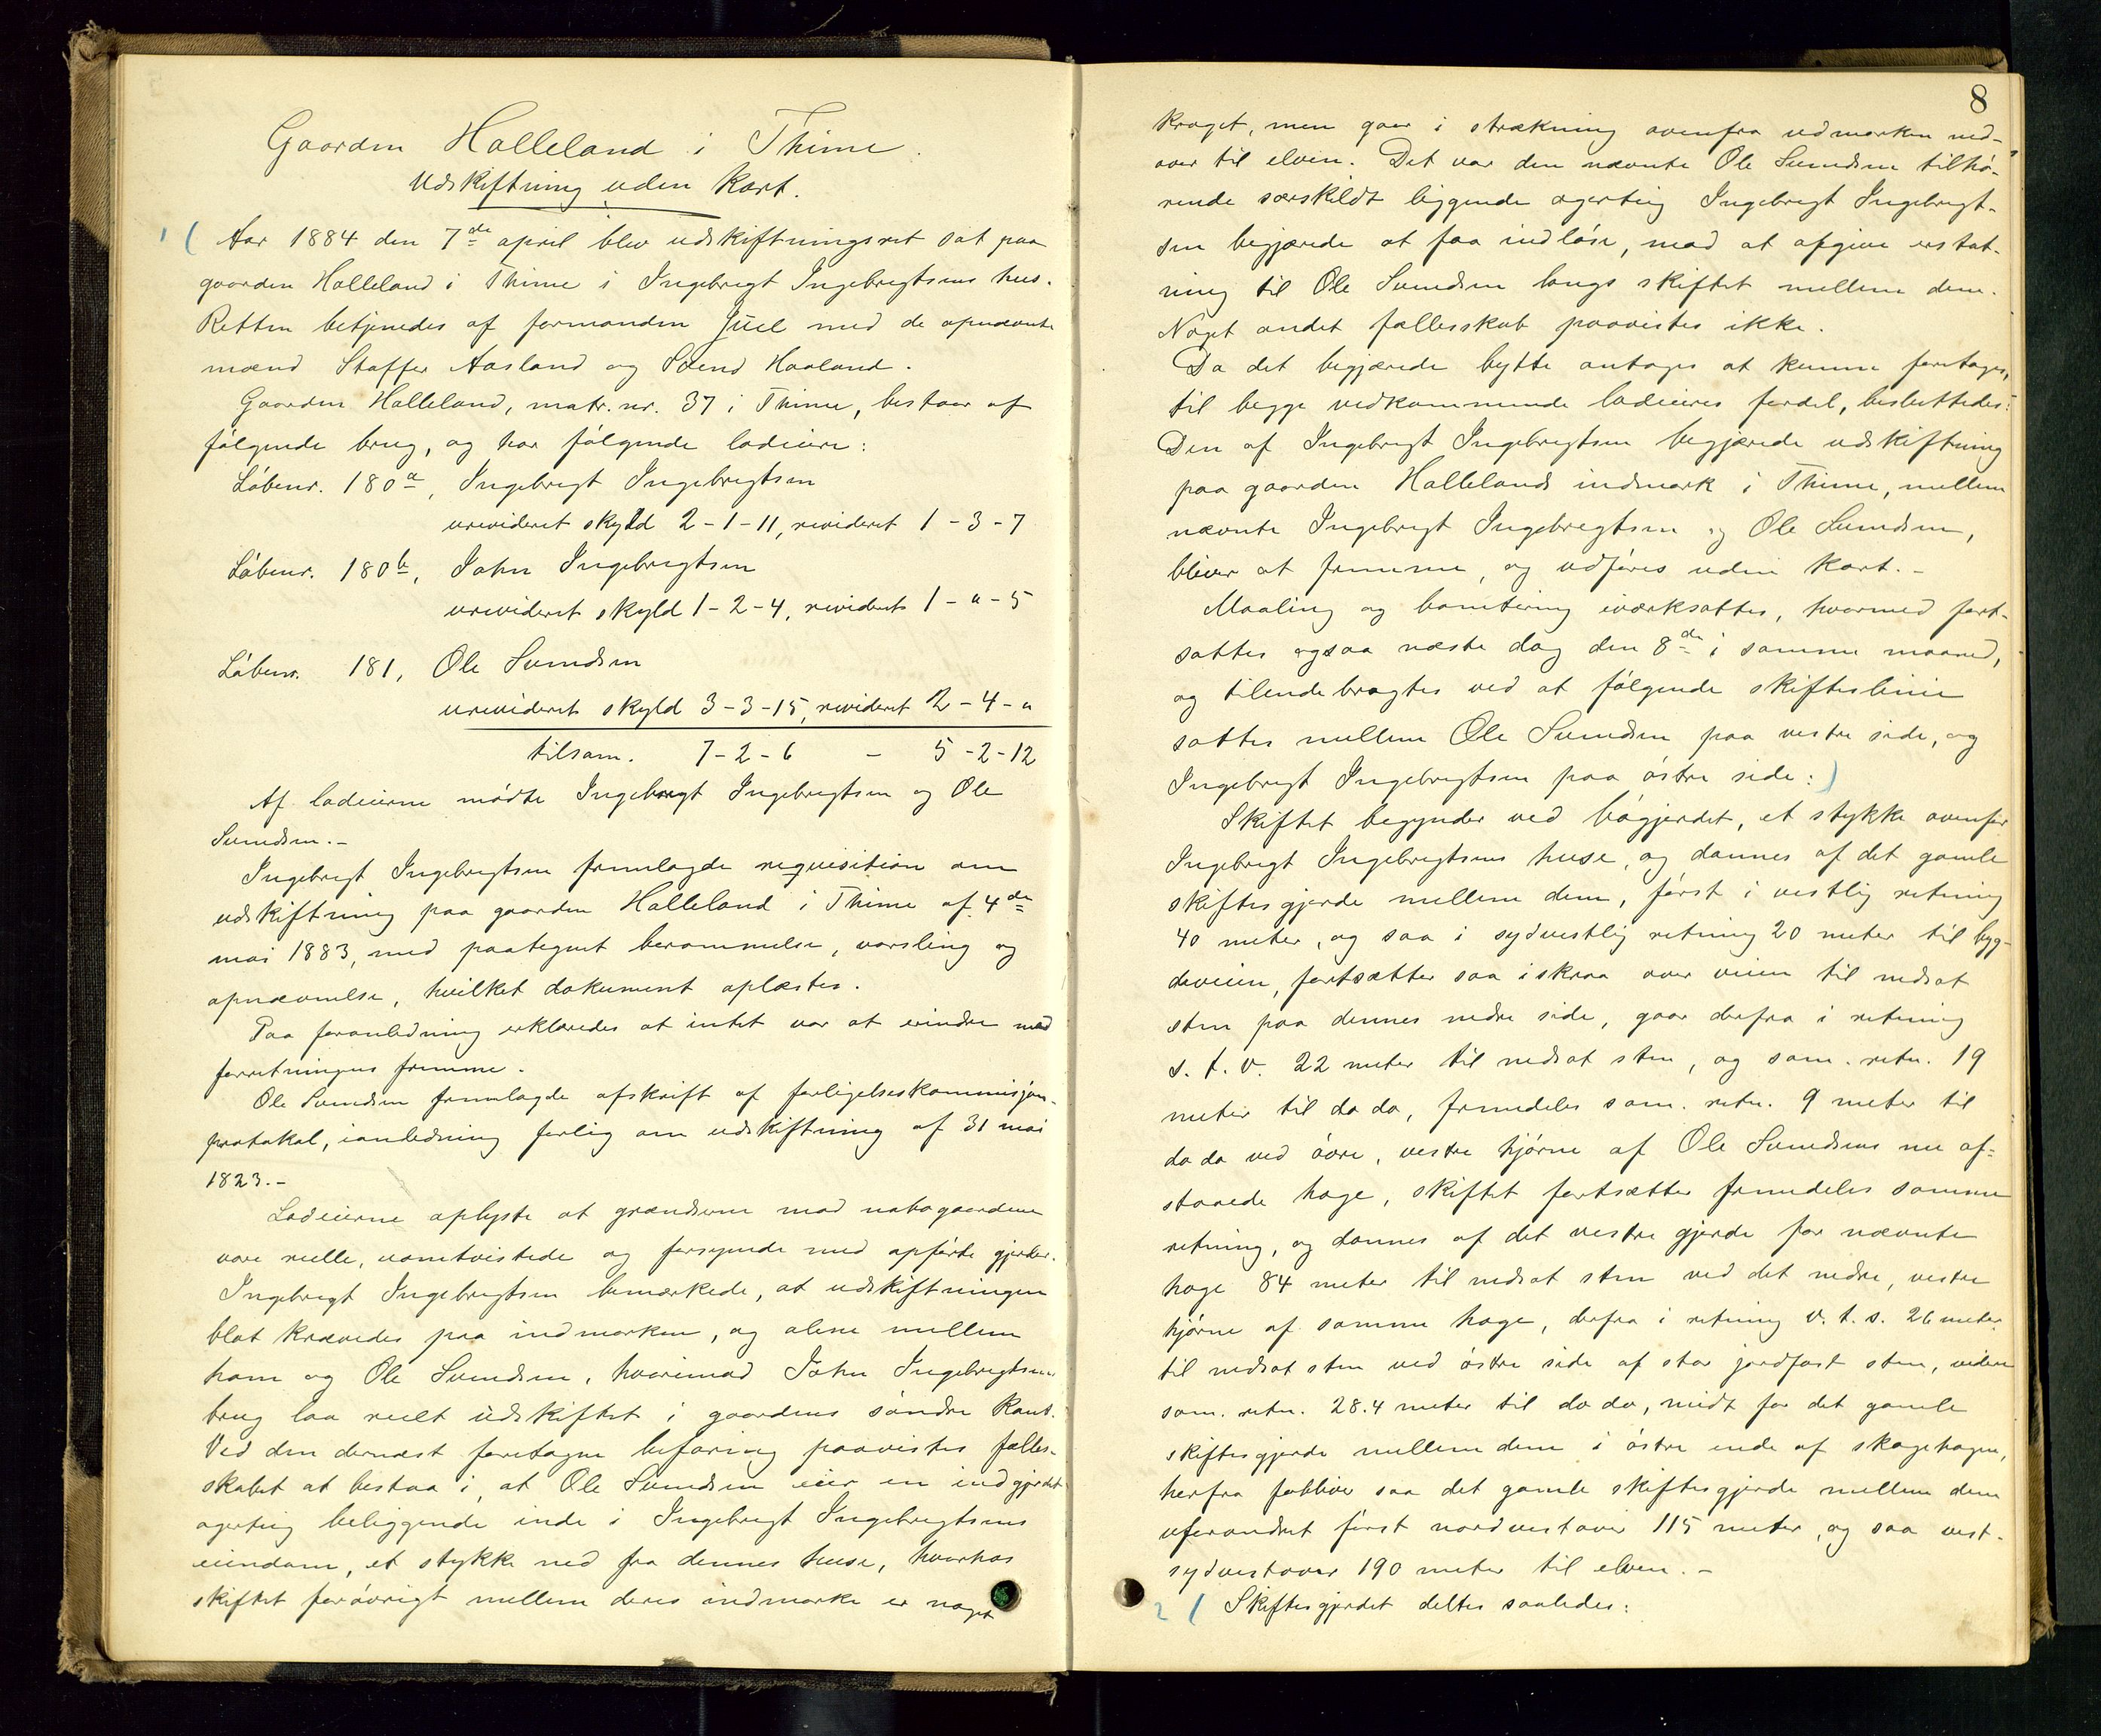 Gaarden Halleland i Thime.
Udskiftning uden kart.
1 ( Aar 1884 den 7de april blev udskiftningsret sat paa
gaarden Halleland i Thime i Ingebregt Ingebregtsens hus.
Retten betjenedes af formanden Juel med de opnævnte
mænd Staffer Aasland og Svend Haaland.
Gaarden Halleland, matr. nr. 37 i Thime, bestaar af
følgende brug, og har følgende lodeiere:
Løbenr. 180a, Ingebregt Ingebregtsen
urevideret skyld 2-1-11, revideret 1-3-7
Løbenr. 180b, John Ingebregtsen
urevideret skyld 1-2-4, revideret 1-"-5
Løbenr. 181, Ole Svendsen
urevideret skyld 3-3-15, revideret 2-4-"
tilsam. 7-2-6 - 5-2-12
Af lodeierne mødte Ingebregt Ingebregtsen og Ole
Svendsen.-
Ingebregt Ingebregtsen fremlagde requisition om
udskiftning paa gaarden Halleland i Thime af 4de
mai 1883, med paategnet berammelse, varsling og
opnævnelse, hvilket dokument oplæstes.
Paa foranledning erklæredes at intet var at erindre mod
forretningens fremme.
Ole Svendsen fremlagde afskrift af forligelseskommisjons-
protokol, ianledning forlig om udskiftning af 31 mai
1823.-
Lodeierne oplyste at grændserne mod nabogaardene
vare reelle, uomtvistede og forsynede med opførte gjerder.
Ingebregt Ingebregtsen bemærkede, at udskiftningen
blot krævedes paa indmarken, og alene mellem
ham og Ole Svendsen, hvorimod John Ingebregtsens
brug laa reelt udskiftet i gaardens søndre kant.
Ved den dernæst foretagne befaring paavistes fælles-
skabet at bestaa i, at Ole Svendsen eier en indgjerdet
agerteig beliggende inde i Ingebregt Ingebregtsens
eiendom, et stykke ned fra dennes huse, hvorhos
skiftet forøvrigt mellem deres indmarke er noget
8
kroget, men gaar i strækning ovenfra udmarken ned-
over til elven. Det var den nævnte Ole Svendsen tilhø-
rende særskildt liggende agerteig Ingebregt Ingebregt-
sen begjærede at faa indløse, mod at afgive erstat-
ning til Ole Svendsen langs skiftet mellem dem.
Noget andet fællesskab paavistes ikke.
Da det begjærede bytte antages at kunne foretages,
til begge vedkommende lodeieres fordel, besluttedes:
Den af Ingebregt Ingebregtsen begjærede udskiftning
paa gaarden Hallelands indmark i Thime, mellem
nævnte Ingebregt Ingebregtsen og Ole Svendsen,
bliver at fremme, og udføres uden kart.-
Maaling og bonitering iværksattes, hvormed fort-
sattes ogsaa næste dag den 8de i samme maaned,
og tilendebragtes ved at følgende skifteslinie
sattes mellem Ole Svendsen paa vestre side, og
Ingebregt Ingebregtsen paa østre side: )
Skiftet begynder ved bøgjerdet, et stykke ovenfor
Ingebregt Ingebregtsens huse, og dannes af det gamle
skiftesgjerde mellem dem, først i vestlig retning
40 meter, og saa i sydvestlig retning 20 meter til byg-
deveien, fortsætter saa iskraa over veien til nedsat
sten paa dennes nedre side, gaar derfra i retning
s. t. v. 22 meter til nedsat sten, og sam. retn. 19
meter til do do, fremdeles sam. retn. 9 meter til
do do ved øvre, vestre hjørne af Ole Svendsens nu af-
staaede hage, skiftet fortsætter fremdeles samme
retning, og dannes af det vestre gjerde for nævnte
hage 84 meter til nedsat sten ved det nedre, vestre
hjørne af samme hage, derfra i retning v. t. s. 26 meter
til nedsat sten ved østre side af stor jordfast sten, videre
sam. retn. 28.4 meter til do do, midt for det gamle
skiftesgjerde mellem dem i østre ende af skagehagen,
herfra forbliver saa det gamle skiftesgjerde mellem dem
uforandret først nordvestover 115 meter, og saa vest-
sydvestover 190 meter til elven.-
2 ( Skiftesgjerdet deltes saaledes: